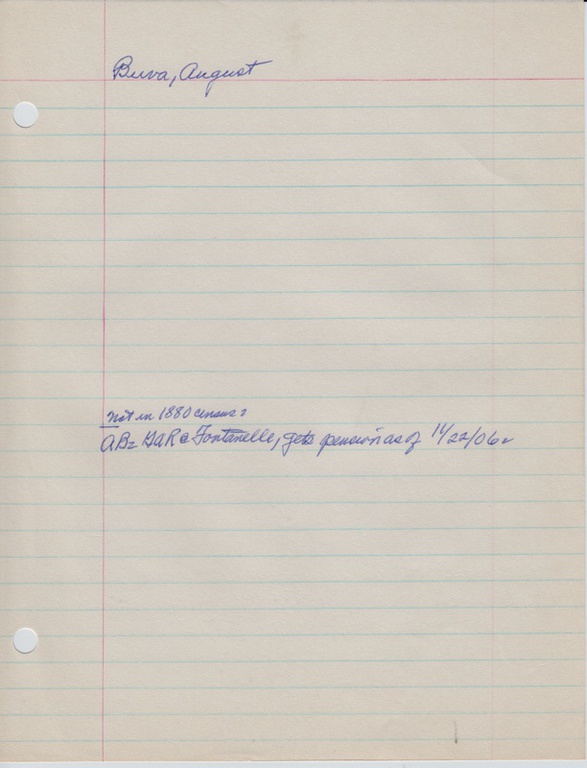 Buva, August
Not in 1880 census.
AB= GAR @ Fontanelle, gets pension as of 11/22/06.